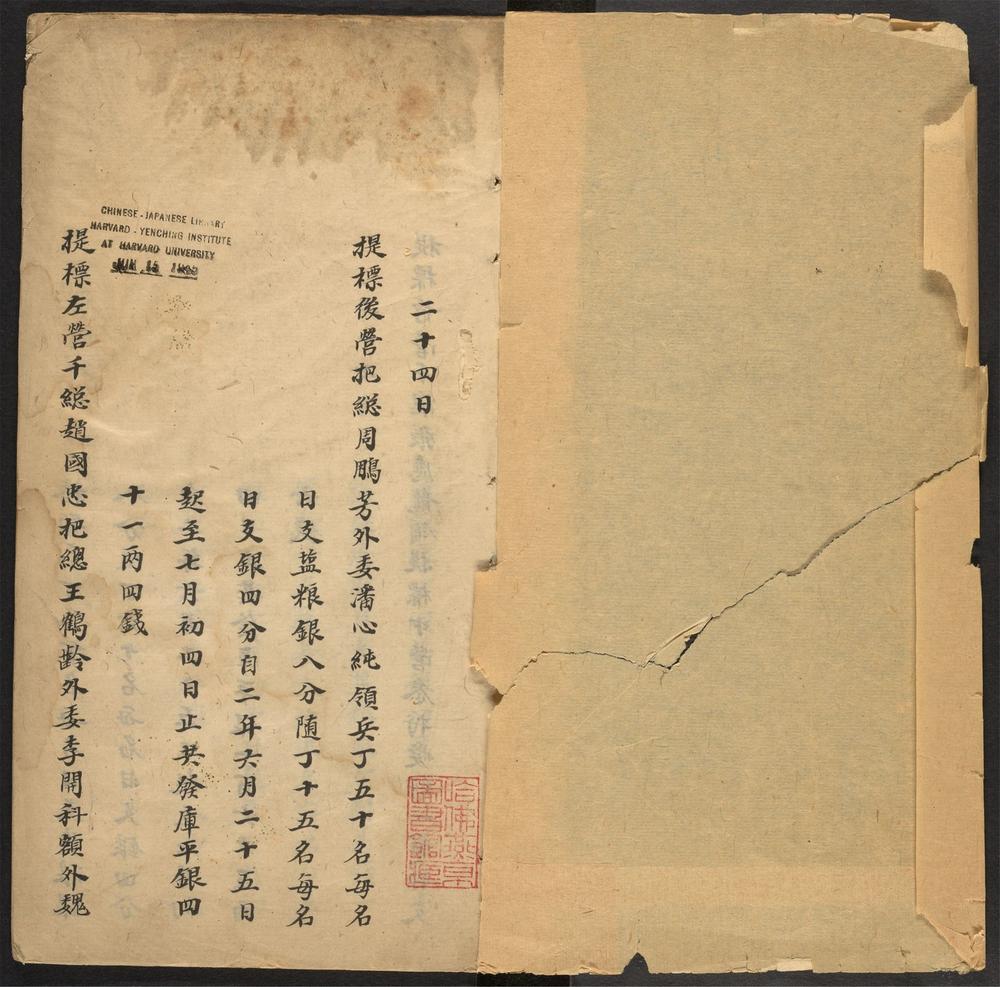 二十四日
提標後營把縂周鵬芳外委潘心純領兵丁五十名每名
日支盐粮銀八分随丁十五名每名
日支銀四分自二年六月二十五日
起至七月初四日止共發庫平銀四
十一两四錢
提標左營千縂趙國忠把總王鶴齡外委李開科額外魏
哈佛燕京
圖書館
CHINESE - JAPANESE LIBRARY
HARVARD - YENCHING INSTITUTE
AT HARVARD UNIVERSITY